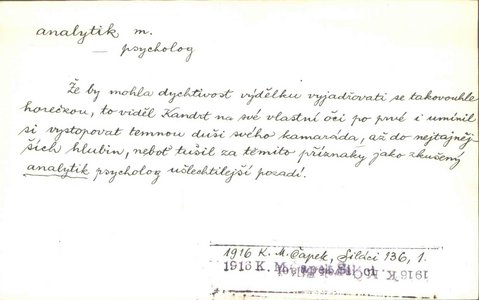 analytik m.
psycholog
Že by mohla dychtivost výdělku vyjadřovati se takovouhle
horečkou, to viděl Kandrt na své vlastní oči po prvé i umínil
si vystopovat temnou duši svého kamaráda, až do nejtajněj-
ších hlubin, neboť tušil za těmito příznaky jako zkušený
analytik psycholog ušlechtilejší pozadí.
1916 K. M. Čapek, Siláci 136, 1.
1916 K. M. Čapek Siláci